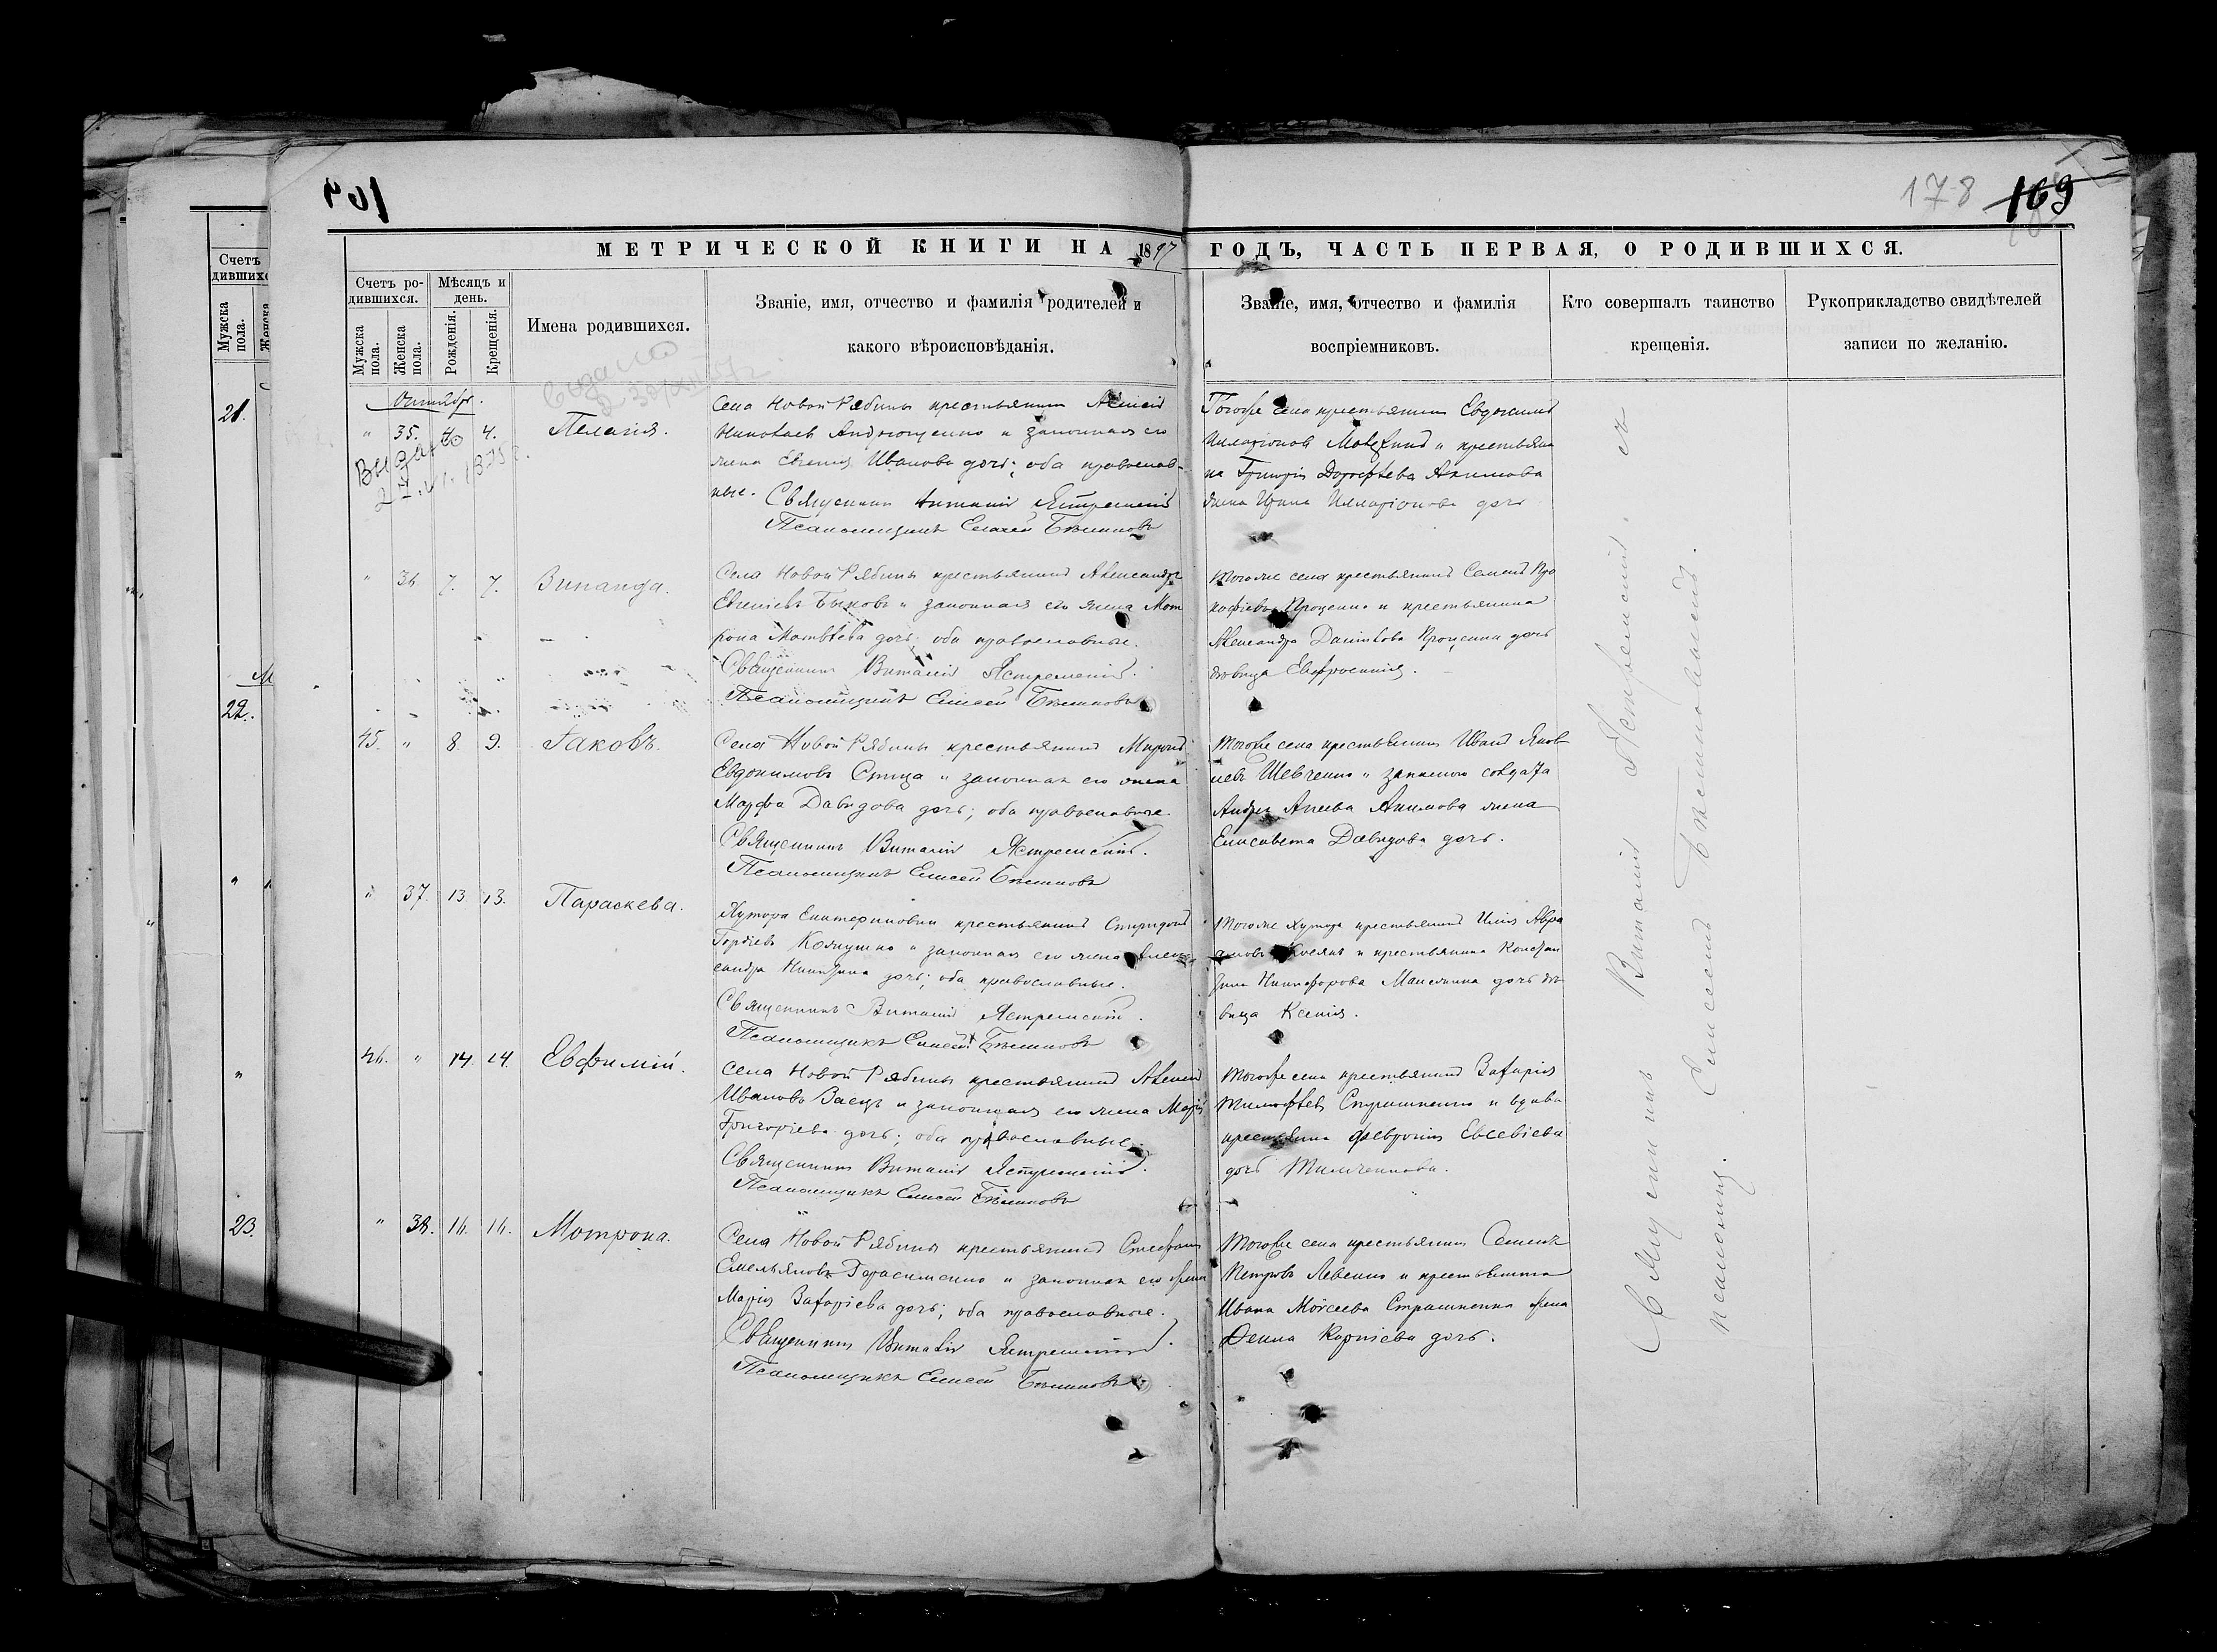 178 169
МЕТРИЧЕСКОЙ КНИГИ НА 1897 ГОДЪ, ЧАСТЬ ПЕРВАЯ, О РОДИВШИХСЯ.
Счетъ родившихся.
Мужска пола.
Женска пола.
Мѣсяцъ и день.
Рожденія.
Крещенія.
Имена родившихся.
Званіе, имя, отчество и фамилія родителей и
какого вѣроисповѣданія.
Званіе, имя, отчество и фамилія
воспріемниковъ.
Кто совершалъ таинство
крещенія.
Рукоприкладство свидѣтелей
записи по желанію.
Октябрь.
" 35. 4. 4. Пелагія.
Выдано
Села Новой Рябины крестьянинъ Алексій
Николаевъ Андрющенко и законная его
жена Евгенія Иванова дочь; оба православ-
ные. Священникъ Виталій Ястремскій
Псаломщикъ Елисей Бѣликовъ
Тогоже села крестьянинъ Евдокимъ
Илларіоновъ и крестьяни
на Григорія Дорофѣева Акимова
жена Ирина Илларіонова дочь
" 36. 7. 7. Зинаида.
Села Новой Рябины крестьянинъ Александръ
Евгеніевъ Быковъ и законная его жена Мат
рона Матвѣева дочь; оба православные.
Священникъ Виталій Ястремскій.
Псаломщикъ Елисей Бѣликовъ
Тогоже села крестьянинъ Семенъ Про
кофіевъ Проценко и крестьянина
Александра Даниилова Проценка дочь
дѣвица Евфросинія.
45. " 8. 9. Іаковъ.
Села Новой Рябины крестьянинъ Миронъ
Евдокимовъ Спица и законная его жена
Марфа Давидова дочь; оба православные.
Священникъ Виталій Ястремскій.
Псаломщикъ Елисей Бѣликовъ
Тогоже села крестьянинъ Иванъ Яков
левъ Шевченко и запасного солдата
Андрея Акимова жена
Елисавета Давидова дочь.
" 37. 13. 13. Параскева.
Хутора Екатериновки крестьянинъ Спиридонъ
Гордіевъ и законная его жена Алек
сандра Никитина дочь; оба православные.
Священникъ Виталій Ястремскій.
Псаломщикъ Елисей Бѣликовъ
Тогоже хутора крестьянинъ Илія Авра
амовъ и крестьянина Констан
тина Никифорова дочь дѣ
вица Ксенія.
46. " 14. 14. Евфимій.
Села Новой Рябины крестьянинъ Алексій
Ивановъ Заецъ и законная его жена Марія
Григоріева дочь; оба православные.
Священникъ Виталій Ястремскій.
Псаломщикъ Елисей Бѣликовъ
Тогоже села крестьянинъ Захарія
Тимофѣевъ Страшненко и вдова
крестьянка Февронія Евсевіева
дочь
" 38. 16. 16. Мотрона.
Села Новой Рябины крестьянинъ Стефанъ
Емельяновъ Герасименко и законная его жена
Марія Захаріева дочь; оба православные.
Священникъ Виталій Ястремскій.
Псаломщикъ Елисей Бѣликовъ
Тогоже села крестьянинъ Семенъ
Петровъ Левенко и крестьянина
Ивана Моисеева Страшненка жена
Корніева дочь.
Священникъ Виталій Ястремскій. съ
псаломщ. Елисеемъ Бѣликовымъ.
Счетъ
дившихс
Мужска
пола.
21.
22.
23.